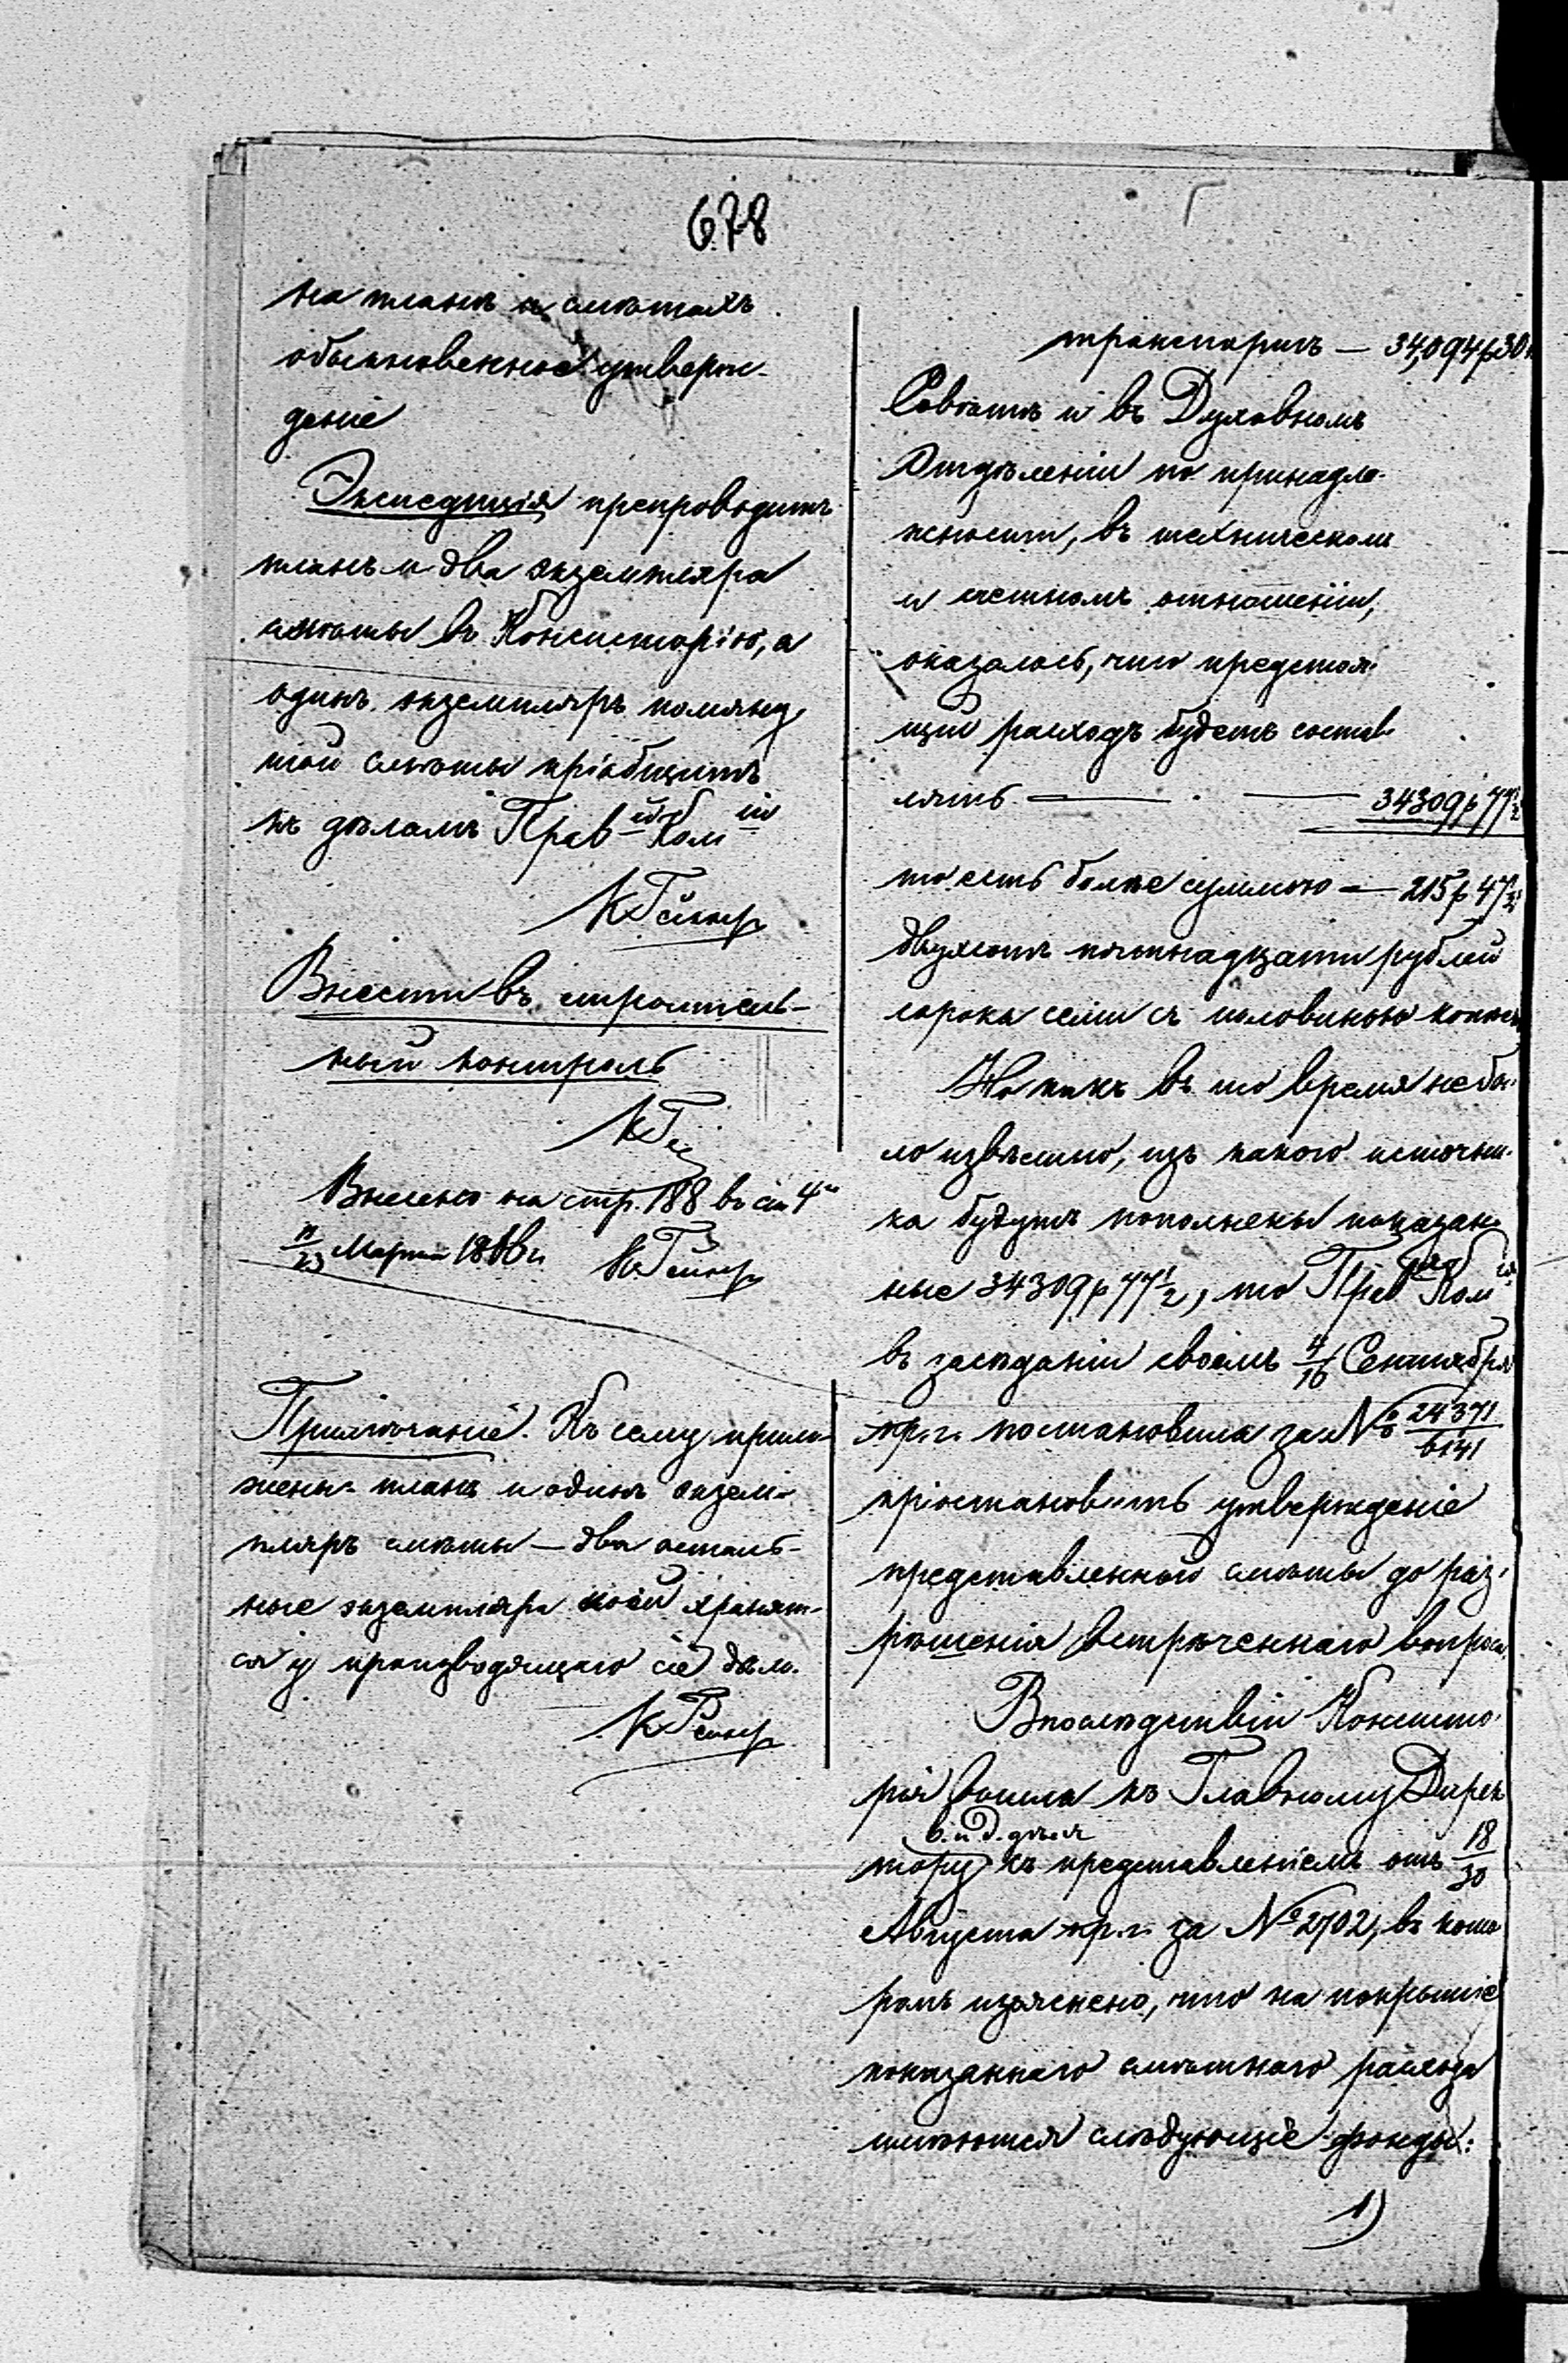 678
на планѣ и смѣтахъ
обыкновенное утверж-
деніе
Экспедиція препроводитъ
планъ и два экземпляра
смѣты въ Консисторію, а
одинъ экземпляръ помяну
той смѣты пріобщитъ
къ дѣламъ Прав-ой Ком-іи
Внести въ строитель-
ный контроль
Внесено на стр. 188 въ ст 4
11/23 Марта 1866 г.
Примѣчаніе. Къ сему прило-
жены планъ и одинъ экзем-
пляръ смѣты — два осталь-
ные экземпляра коей хранят-
ся у производящаго сіе дѣло.
транспортъ — 34,094 р 30
Совѣтѣ и въ Духовномъ
Отдѣленіи по принадле-
жности, въ техническомъ
и счетномъ отношеніи,
оказалось, что предстоя-
щій расходъ будетъ состав-
лять — — 34309 р 77 1/2
то есть болѣе суммою — 215 р 47 1/2
двухсотъ пятнадцати рублей
сорока семи съ половиною копѣекъ
Но какъ въ то время не бы-
ло извѣстно, изъ какого источни-
ка будутъ пополнены показан-
ные 34309 р 77 1/2, то Прав Ком
въ засѣданіи своемъ 4/16 Сентября
пр. г. постановила за № 24371/6141
пріостановить утвержденіе
представленной смѣты до раз-
рѣшенія встрѣченнаго вопроса.
Впослѣдствіи Консисто-
рія вошла къ Главному Дирек
в. и д. дѣлъ
тору съ представленіемъ отъ 18/30
Августа пр. г. за № 2702, въ кото
ромъ изъяснено, что на покрытіе
показаннаго смѣтнаго расхода
имѣются слѣдующіе фонды:
1)